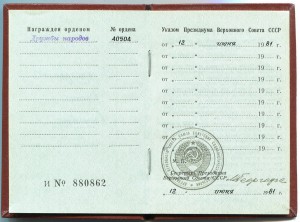 Награжден орденом № ордена
Дружбы народов 40904
И № 880862
Указом Президиума Верховного Совета СССР
от „ 12 „ июня 1981 г.
от „ „ 19 г.
от „ „ 19 г.
от „ „ 19 г.
от „ „ 19 г.
от „ „ 19 г.
от „ „ 19 г.
от „ „ 19 г.
от „ „ 19 г.
Секретарь Президиума
Верховного Совета СССР
„ 12 „ июня 1981 г.